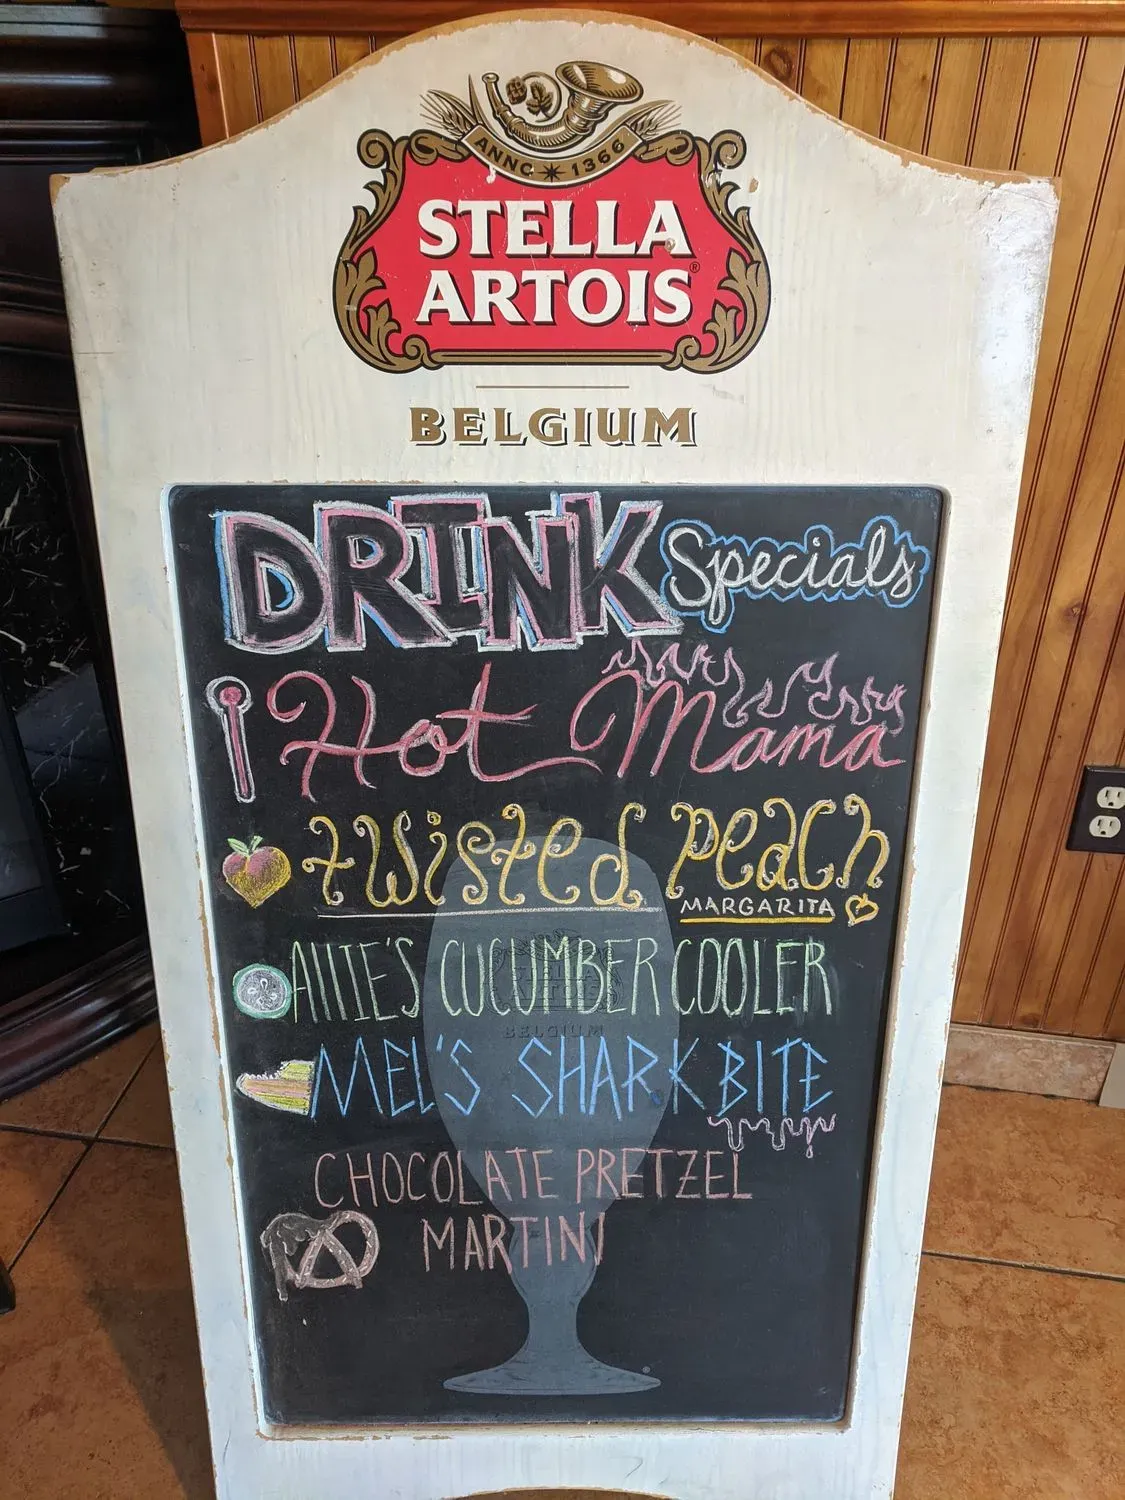 ANNO 1366
STELLA
ARTOIS®
BELGIUM
DRINK Specials
Hot Mama
twisted peach
MARGARITA
AllIE'S CUCUMBER COOLER
MEL'S SHARK BITE
CHOCOLATE PRETZEL
MARTINI
STELLA
ARTOIS
BELGIUM